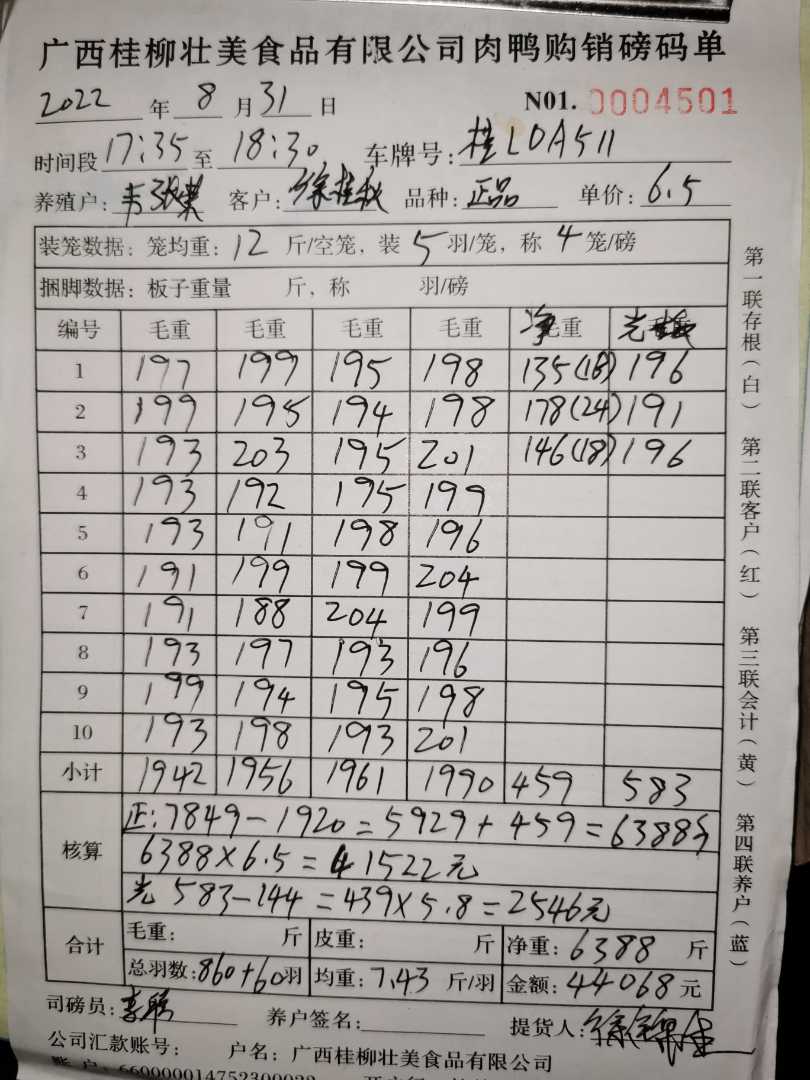 广西桂柳壮美食品有限公司肉鸭购销磅码单
2022 年 8 月 31 日 N01. 0004501
时间段 17:35 至 18:30 车牌号: 桂LDA511
养殖户: 客户: 徐桂秋 品种: 正品 单价: 6.5
装笼数据: 笼均重: 12 斤/空笼, 装 5 羽/笼, 称 4 笼/磅
捆脚数据: 板子重量 斤, 称 羽/磅
编号 毛重 毛重 毛重 毛重 净重 光
1 197 199 195 198 135(18) 196
2 199 195 194 198 178(24) 191
3 193 203 195 201 146(18) 196
4 193 192 195 199
5 193 191 198 196
6 191 199 199 204
7 191 188 204 199
8 193 197 193 196
9 199 194 195 198
10 193 198 193 201
小计 1942 1956 1961 1990 459 583
核算 正: 7849-1920=5929+459=6388斤
6388×6.5=41522元
光 583-144=439×5.8=2546元
合计 毛重: 斤 皮重: 斤 净重: 6388 斤
总羽数: 860+60羽 均重: 7.43 斤/羽 金额: 44068 元
司磅员: 养户签名: 提货人:
公司汇款账号: 户名: 广西桂柳壮美食品有限公司
第一联存根(白) 第二联客户(红) 第三联会计(黄) 第四联养户(蓝)